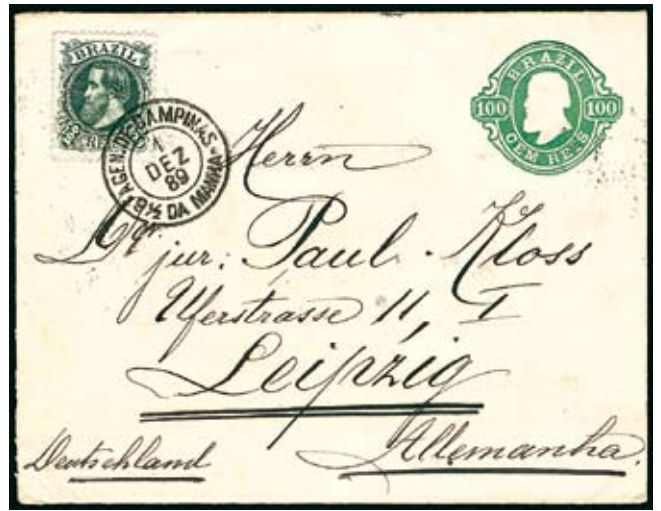 BRAZIL
AGEN. DE CAMPINAS
1
DEZ
89
8½ DA MANHÃ
BRAZIL
100 100
CEM REIS
Herrn
jur: Paul Kloss
Uferstrasse 11, I
Leipzig
Deutschland Allemanha.